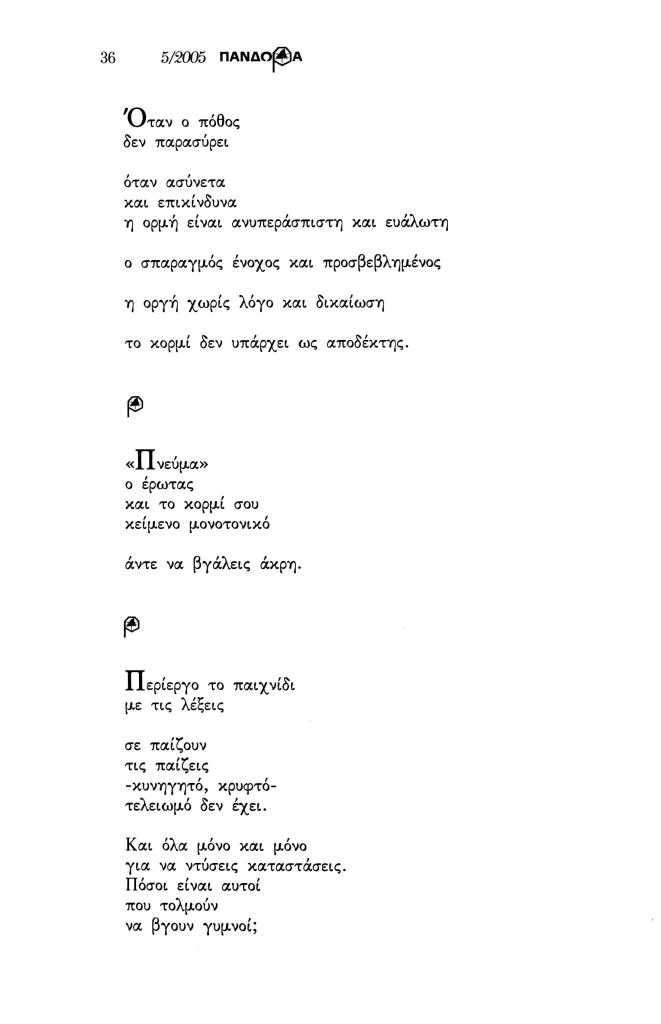 36 5/2005 ΠΑΝΔΟΡΑ
Όταν ο πόθος
δεν παρασύρει
όταν ασύνετα
και επικίνδυνα
η ορμή είναι ανυπεράσπιστη και ευάλωτη
ο σπαραγμός ένοχος και προσβεβλημένος
η οργή χωρίς λόγο και δικαίωση
το κορμί δεν υπάρχει ως αποδέκτης.
«Πνεύμα»
ο έρωτας
και το κορμί σου
κείμενο μονοτονικό
άντε να βγάλεις άκρη.
Περίεργο το παιχνίδι
με τις λέξεις
σε παίζουν
τις παίζεις
-κυνηγητό, κρυφτό-
τελειωμό δεν έχει.
Και όλα μόνο και μόνο
για να ντύσεις καταστάσεις.
Πόσοι είναι αυτοί
που τολμούν
να βγουν γυμνοί;